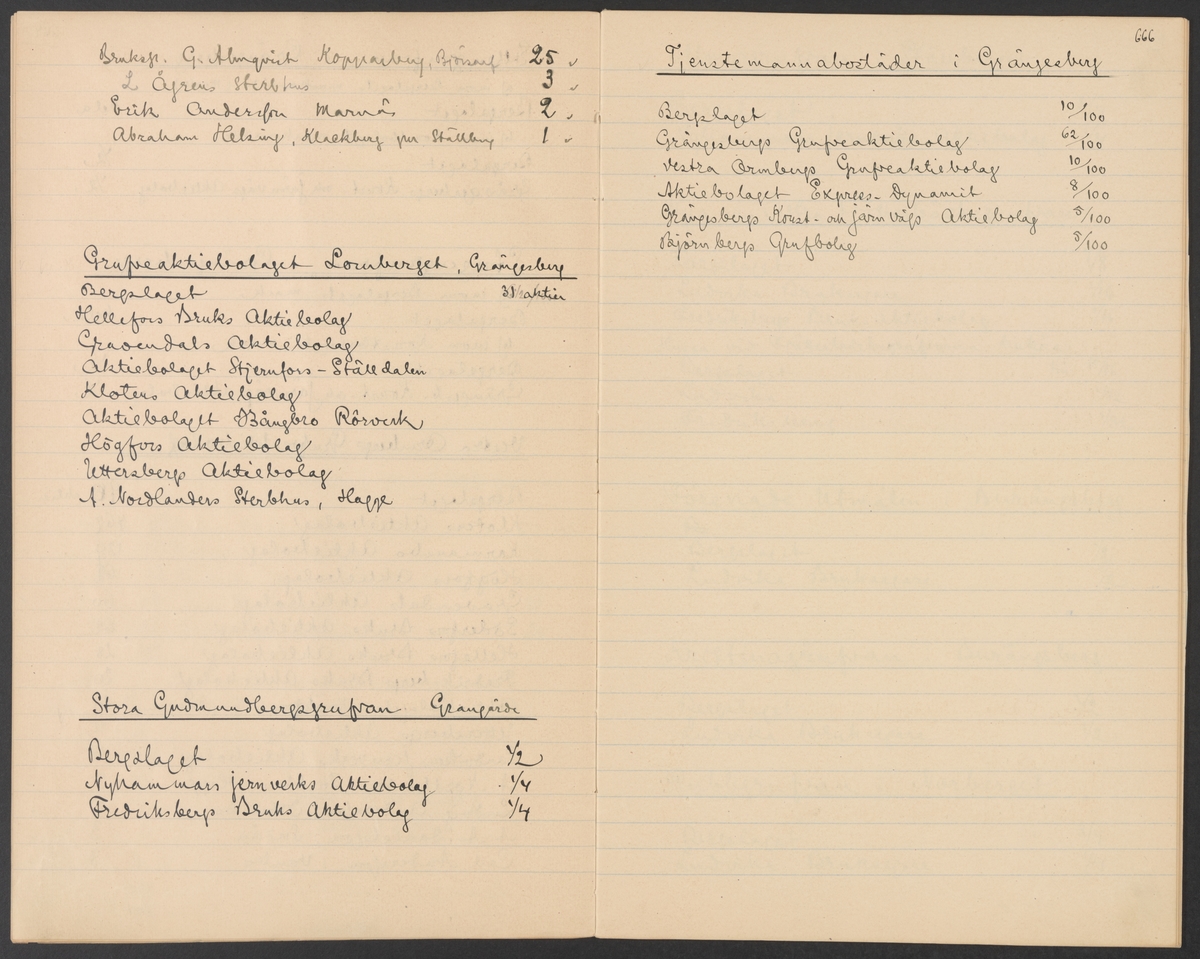 Bruksp. G. Almqvist Kopparberg, 25
L Ågrens Sterbhus 3
Erik Andersson Marnäs 2
Abraham Helsing, Klackberg pr Ställberg 1
Grufveaktiebolaget Lomberget, Grängesberg
Bergslaget aktier
Hellefors Bruks Aktiebolag
Gravendals Aktiebolag
Aktiebolaget Stjernfors-Ställdalen
Klotens Aktiebolag
Aktiebolaget Bångbro Rörverk
Högfors Aktiebolag
Uttersbergs Aktiebolag
A. Nordlanders Sterbhus, Hagge
Stora Gudmundbergsgrufvan Grangärde
Bergslaget 1/2
Nyhammars jernverks Aktiebolag 1/4
Fredriksbergs Bruks Aktiebolag 1/4
666
Tjenstemannabostäder i Grängesberg
Bergslaget 10/100
Grängesbergs Grufveaktiebolag 62/100
Vestra Ormbergs Grufveaktiebolag 10/100
Aktiebolaget Express-Dynamit 8/100
Grängesbergs Konst- och järnvägs Aktiebolag 5/100
Björnbergs Grufbolag 5/100